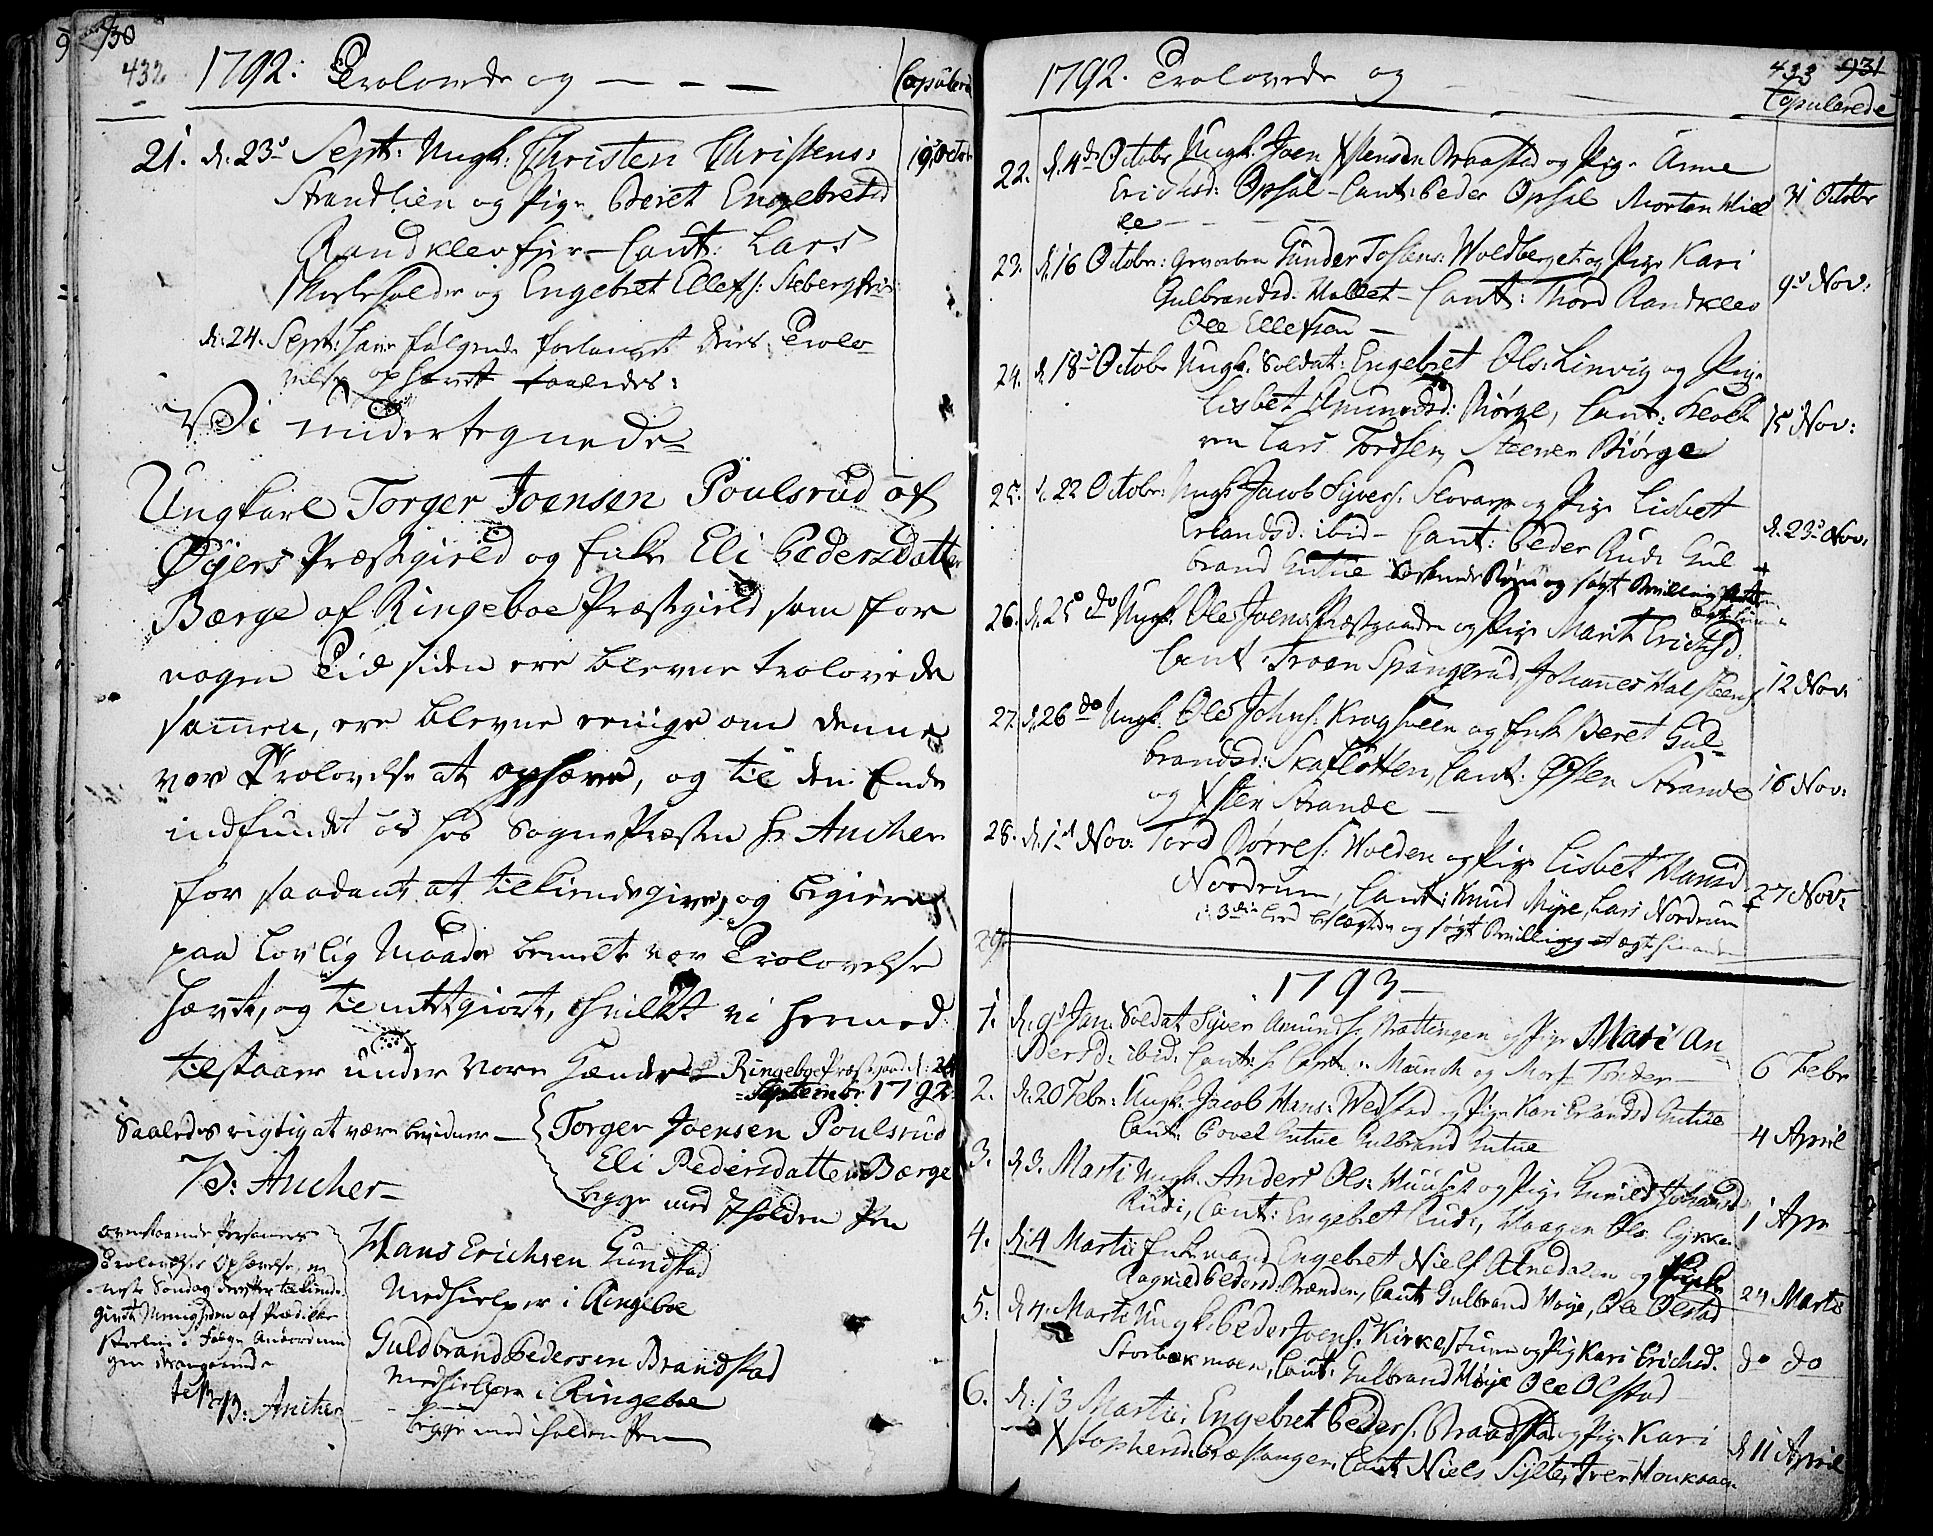 930
432
1792: Trolovede og — — — Copulered
21. d: 23de Sept: Ungk: Christen Christens:
Strandlien og Pige Beret Engebretsd
Randklevfier – Caut: Lars
og Engebret Ellefs: Steberg
19de Octobr
d: 24. Sept: have følgende forlanget deres Trolo-
velse ophævet saaledes:
Vi undertegnede
Ungkarl Torger Joensen Poulsrud af
Øyers Præstgield og Enke Eli Pedersdatter
Bærge af Ringeboe Præstgield, som for
nogen Tid siden ere blevne trolovede
sammen, ere blevne enige om denne
vor Trolovelse at ophæve, og til den Ende
indfundet os hos Sogne Præsten Hr Ancher
for saadant at tilkiendegive, og begierer
paa lovlig Maade bemelte vor Trolovelse
hævet, og tilintetgiort, hvilket vi hermed
tilstaaer under vore Hænder – Ringeboe Præstgaard d: 24
Septembr 1792.
Saaledes rigtig at være bevidner –
B: Ancher –
Torger Joensen Poulsrud
Eli Pedersdatter Bærge
begge med iholden Pen
ovenstaaende Personers
Trolovelses Ophævelse, er
neste Sondag derefter tilkiende-
givet Menigheden af Prædike
stoelen i Følge Anordnin
gen
test B: Ancher
Hans Erichsen Gundstad
Medhielper i Ringeboe
Guldbrand Pedersen Brandstad
Medhielper i Ringeboe
begge med iholden Pen
433 931
1792. Trolovede og Copulerede
22. d. 4de Octobr Ungk. Joen Xstensen Braastad og Pige Anne
Erichsd: Opsal – Caut: Peder Opsal Morten Miel
le —
31 Octobr
23. d. 16 Octobr: Gevorben Gunder Tostens: Woldberget og Pige Kari
Gulbrandsd: Mollet – Caut: Thord Randklev
Ole Ellefsen –
9de Nov:
24. d. 18de Octobr Ungk. Soldat: Engebret Ols: Linvig og Pige
Lisbet Amundsd: Biørge, Caut: Klock
ren Lars Tordsen, Steener Biørge
15 Nov:
25. d. 22 Octobr: Ungk Jacob Syvers: og Pige Lisbet
Erlandsd: ibid – Caut: Peder Rudi Gul
brand Gutue
d. 23de Nov:
26. d. 25 do Ungk. Ole Joens: Præstgaarden og Pige Marit Erichsd.
Caut: Troen Spangrud, Johannes Halsteens
12 Nov:
27. d. 26 do Ungk. Ole Johns: Kragsveen og Enk Beret Gul-
brandsd: Skaflotten, Caut: Østen Strande
og Xsten Strande —
16 Nov:
28. d. 1st Nov. Tord Børres: Wolden og Pige Lisbet Hansd
Nordrum, Caut: Knud Myre, Lars Nordrum
i 3die Led beslægtede og søgt Bevilling at ægte hinanden
27 Nov:
29.
1793 –
1. d. 9de Jan. Soldat Syver Amunds: Brættingen og Pige Mari An-
dersd: ibid. Caut: Hr Capt: Munch og Mors: Tønder –
6 Febr
2. d. 20 Febr: Ungk. Jacob Hans: Wedstad og Pige Kari Erlandsd Gutue
Caut: Povel Gutue Gulbrand Gutue
4 April
3. d. 3. Marti Ungk. Anders Ols: og Pige Gunild Johansd
Rudi, Caut: Engebret Rudi, Haagen Ols:
1 Apr
4. d: 4 Martii Enkemand Engebret Niels: og
Ragnild Pedersd. Brænden, Caut: Gulbrand Moye, Ole Olstad
24 Marti
5. d 4. Marti Ungk. Peder Joens: Kirkestuen og Pig Kari Erichsd.
Storbækmoen, Caut: Gulbrand Moye Ole Olstad
do do
6. d: 13 Martii: Engebret Peders: Braadstad og Pige Kari
Xstophersd. Bræstangen, Caut: Niels Sylte, Iver
d. 11 April